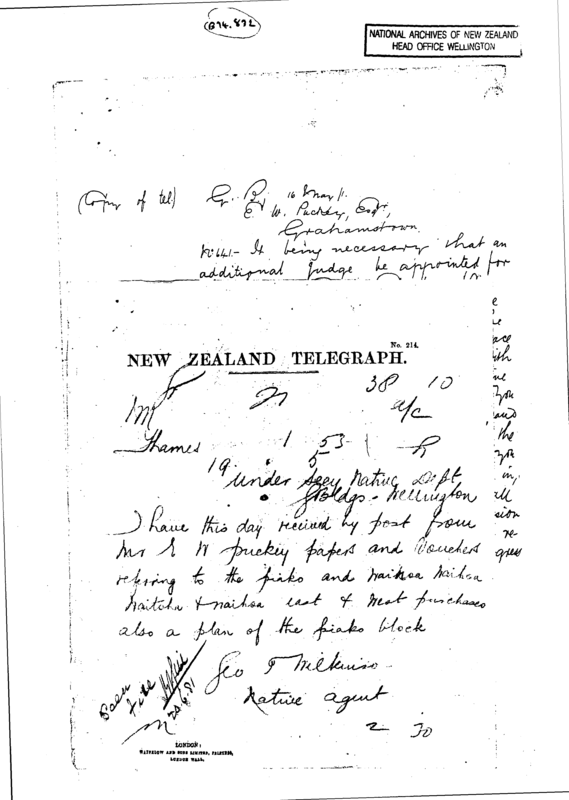 (874.872)
NATIONAL ARCHIVES OF NEW ZEALAND
HEAD OFFICE WELLINGTON
(Copy of tel)
16 May /1.
E W. Puckey, Esqr,
Grahamstown
It being necessary that an
additional Judge be appointed for
No. 214.
NEW ZEALAND TELEGRAPH.
38 10
a/c
Thames 1 53
19 5
Under Secy Native Dept
G Bldgs - Wellington
I have this day received by post from
Mr E W puckey papers and Vouchers
referring to the piako and
Waitoa & Waihoa east & West purchases
also a plan of the piako block
Geo T Wilkinso
Native agent
file
20.6.81
LONDON:
WATERLOW AND SONS LIMITED, PRINTERS,
LONDON WALL.
e
ace
ith
ne
you
and
the
you
in,
ill
sion
re
gress